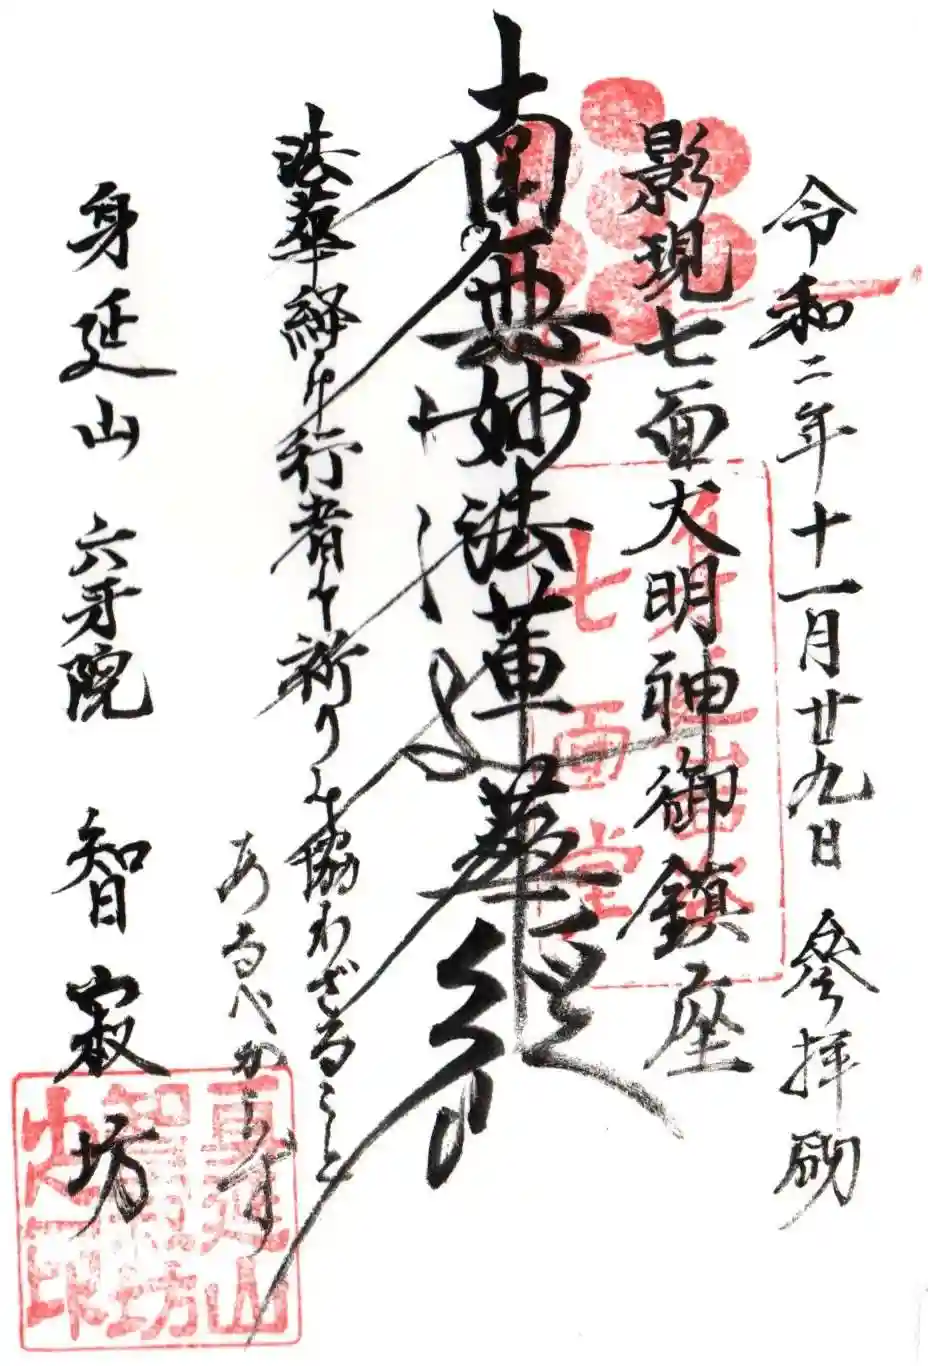 令和二年十一月廿九日 參拝砌
影現七面大明神御鎮座
南無妙法蓮華経
法華経の行者を祈りの協わざること
あるべからず
身延山 六牙院 智寂坊
七面堂
身延山
智寂坊
之印